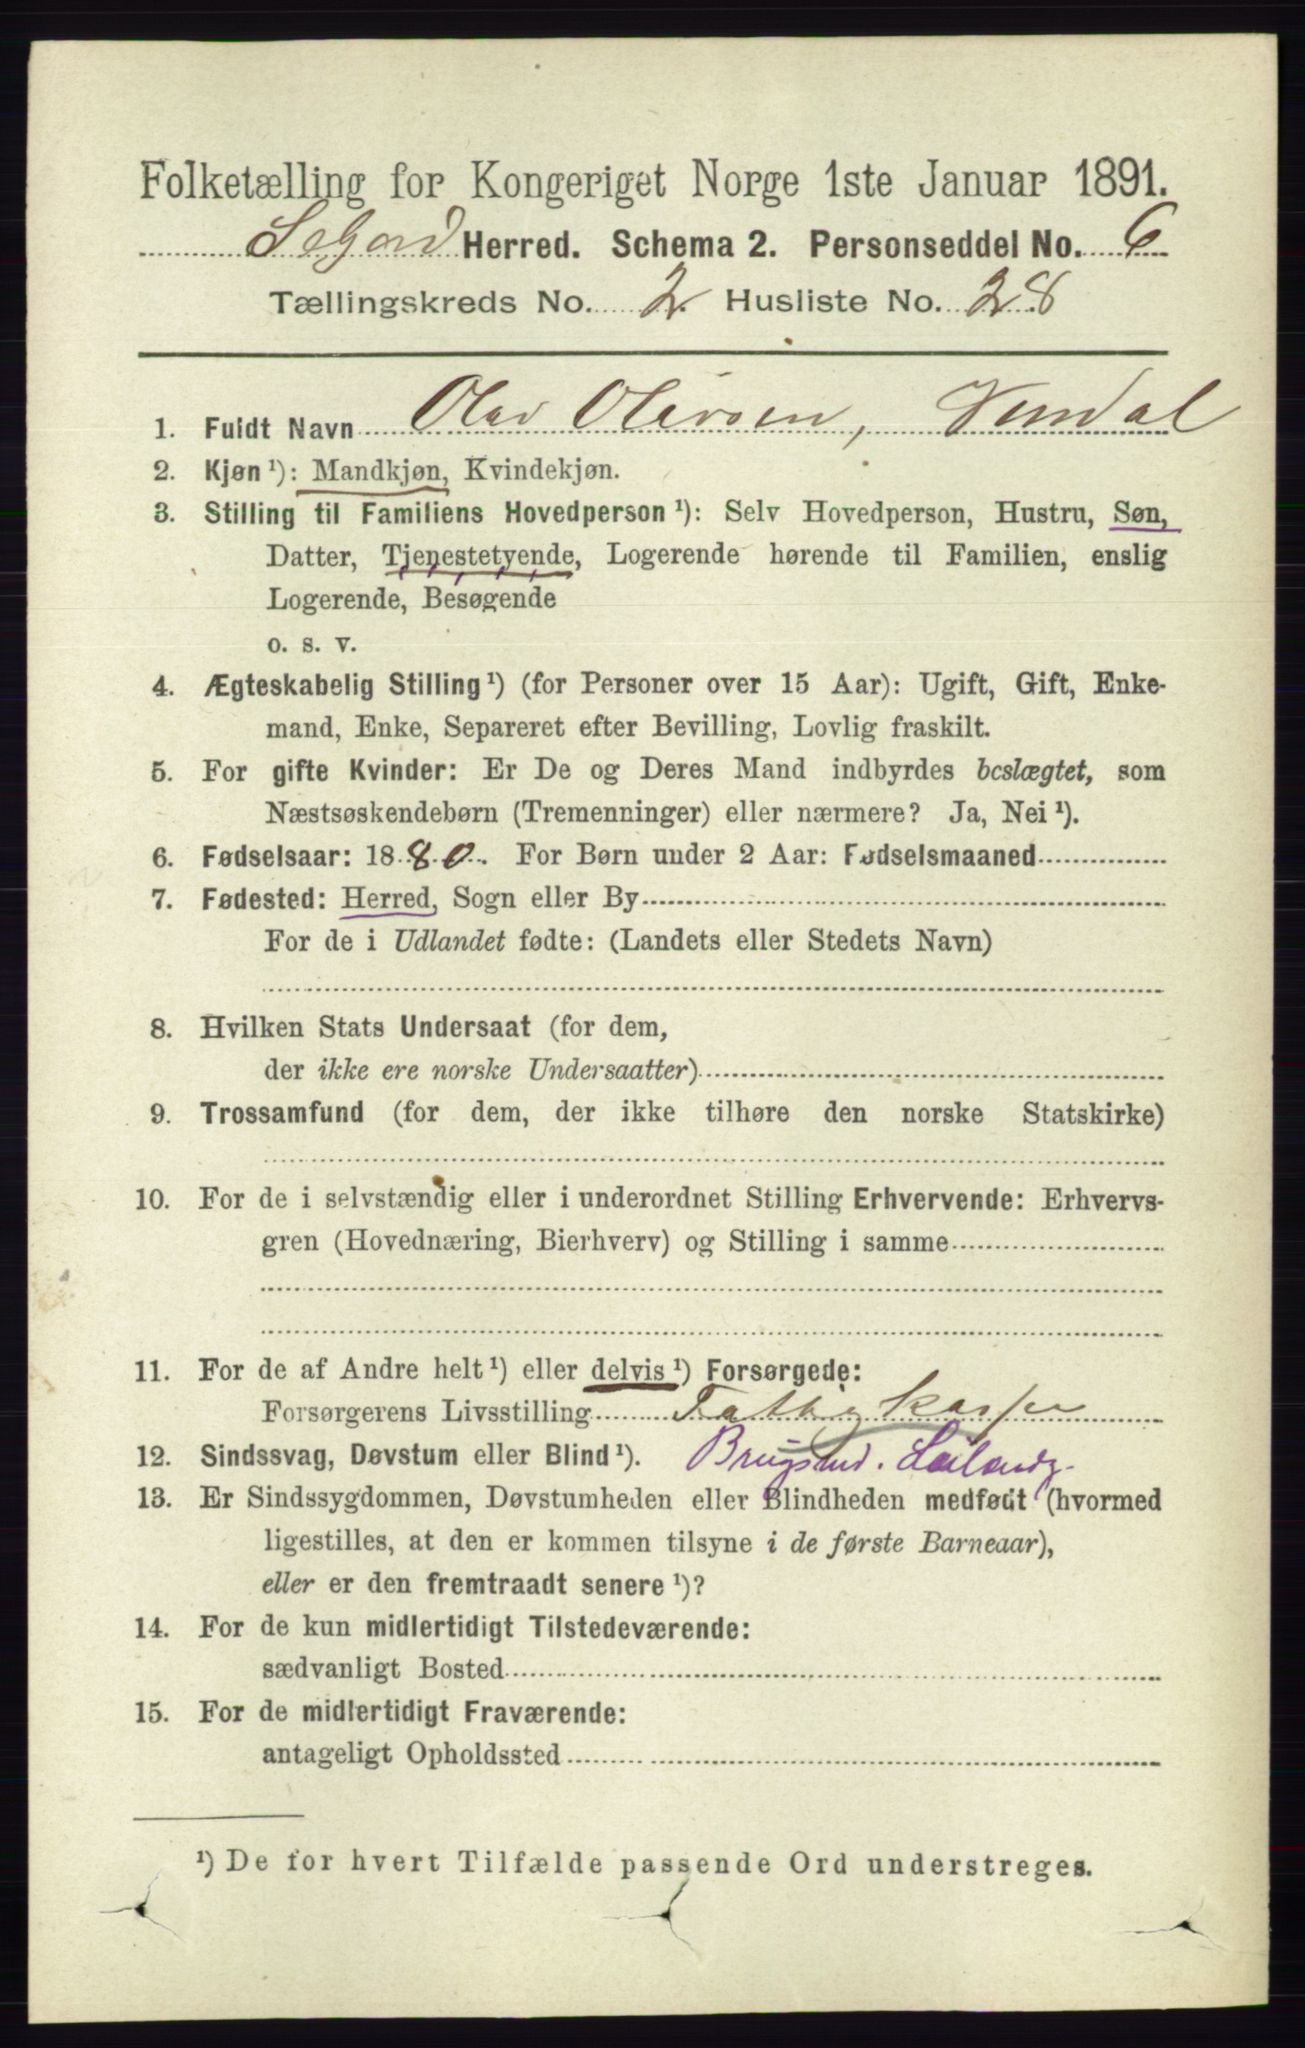 Folketælling for Kongeriget Norge 1ste Januar 1891.
Seljord Herred. Schema 2. Personseddel No. 6
Tællingskreds No. 2 Husliste No. 28
1. Fuldt Navn Olav Olavsen, Vindal
2. Kjøn ¹): Mandkjøn, Kvindekjøn.
3. Stilling til Familiens Hovedperson ¹): Selv Hovedperson, Hustru, Søn,
Datter, Tjenestetyende, Logerende hørende til Familien, enslig
Logerende, Besøgende
o. s. v.
4. Ægteskabelig Stilling ¹) (for Personer over 15 Aar): Ugift, Gift, Enke-
mand, Enke, Separeret efter Bevilling, Lovlig fraskilt.
5. For gifte Kvinder: Er De og Deres Mand indbyrdes beslægtet, som
Næstsøskendebørn (Tremenninger) eller nærmere? Ja, Nei ¹).
6. Fødselsaar: 1880. For Børn under 2 Aar: Fødselsmaaned
7. Fødested: Herred, Sogn eller By
For de i Udlandet fødte: (Landets eller Stedets Navn)
8. Hvilken Stats Undersaat (for dem,
der ikke ere norske Undersaatter)
9. Trossamfund (for dem, der ikke tilhøre den norske Statskirke)
10. For de i selvstændig eller i underordnet Stilling Erhvervende: Erhvervs-
gren (Hovednæring, Bierhverv) og Stilling i samme
11. For de af Andre helt ¹) eller delvis ¹) Forsørgede:
Forsørgerens Livsstilling
12. Sindssvag, Døvstum eller Blind ¹).
13. Er Sindssygdommen, Døvstumheden eller Blindheden medfødt (hvormed
ligestilles, at den er kommen tilsyne i de første Barneaar),
eller er den fremtraadt senere ¹)?
14. For de kun midlertidigt Tilstedeværende:
sædvanligt Bosted
15. For de midlertidigt Fraværende:
antageligt Opholdssted
¹) De for hvert Tilfælde passende Ord understreges.